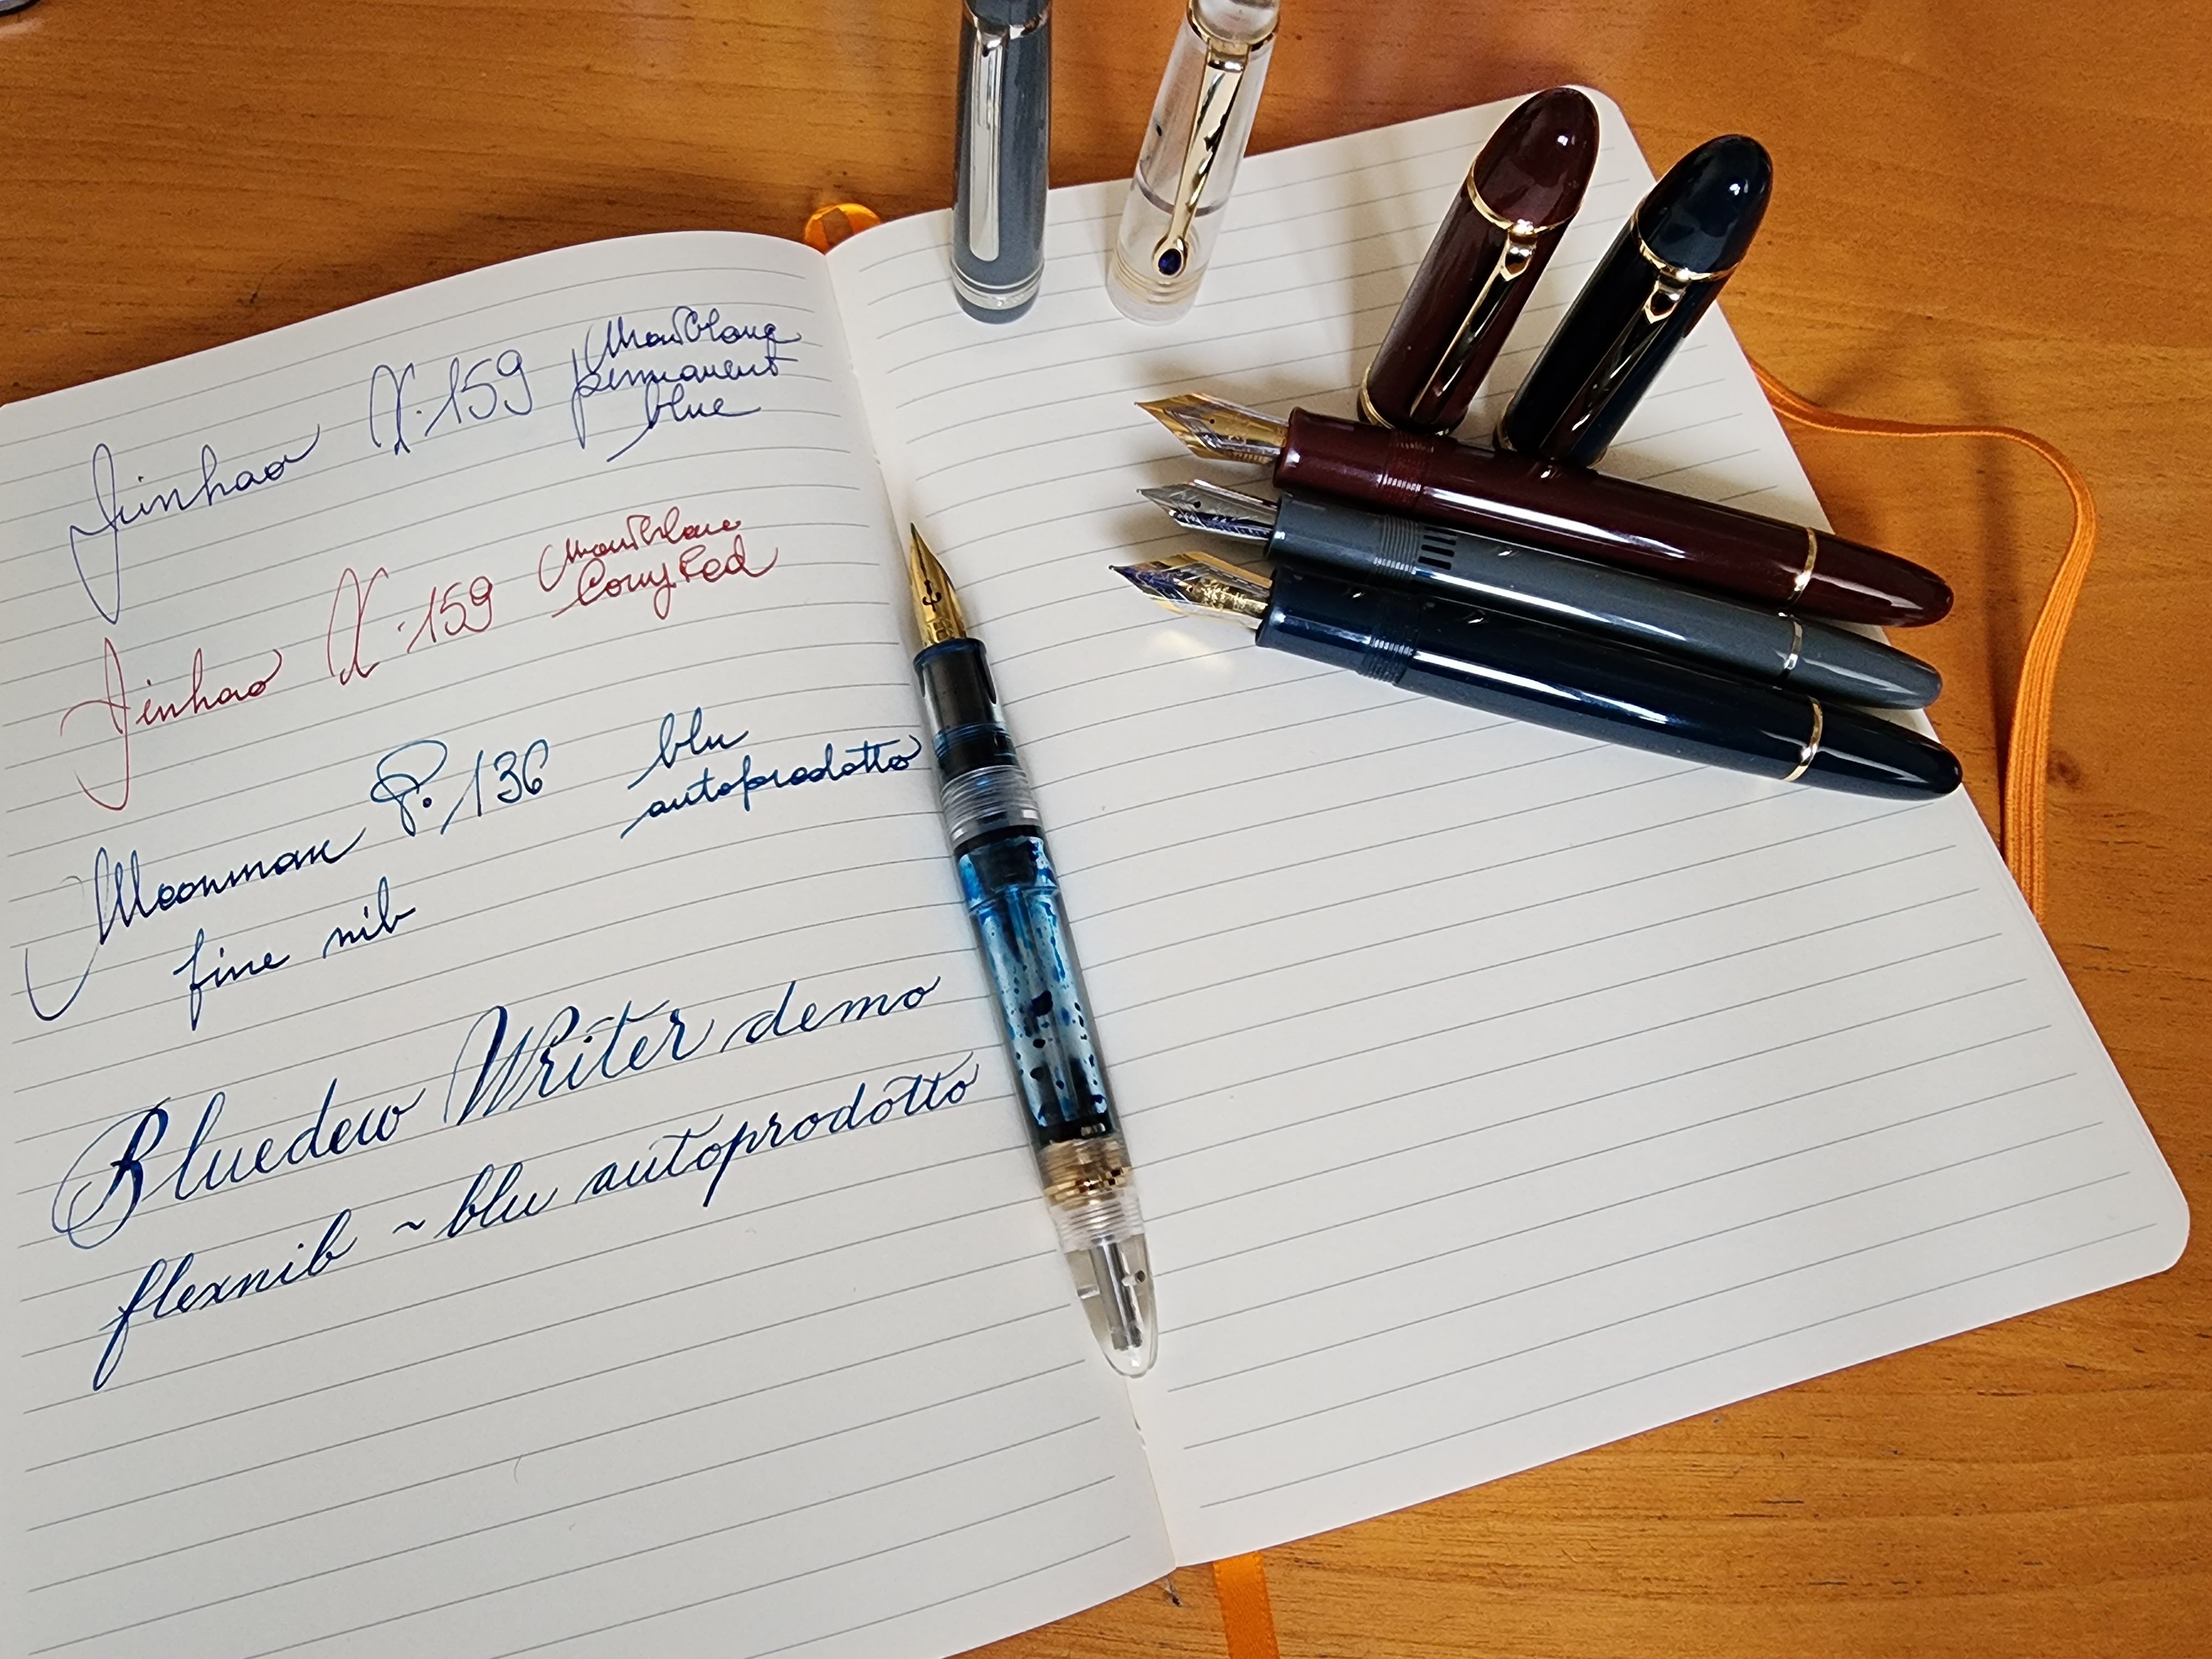 Jinhao X.159 MontBlanc
permanent
blue
Jinhao X.159 MontBlanc
Corn Red
Moonman P.136 blu
autoprodotto
fine nib
Bluedew Writer demo
flexnib ~ blu autoprodotto